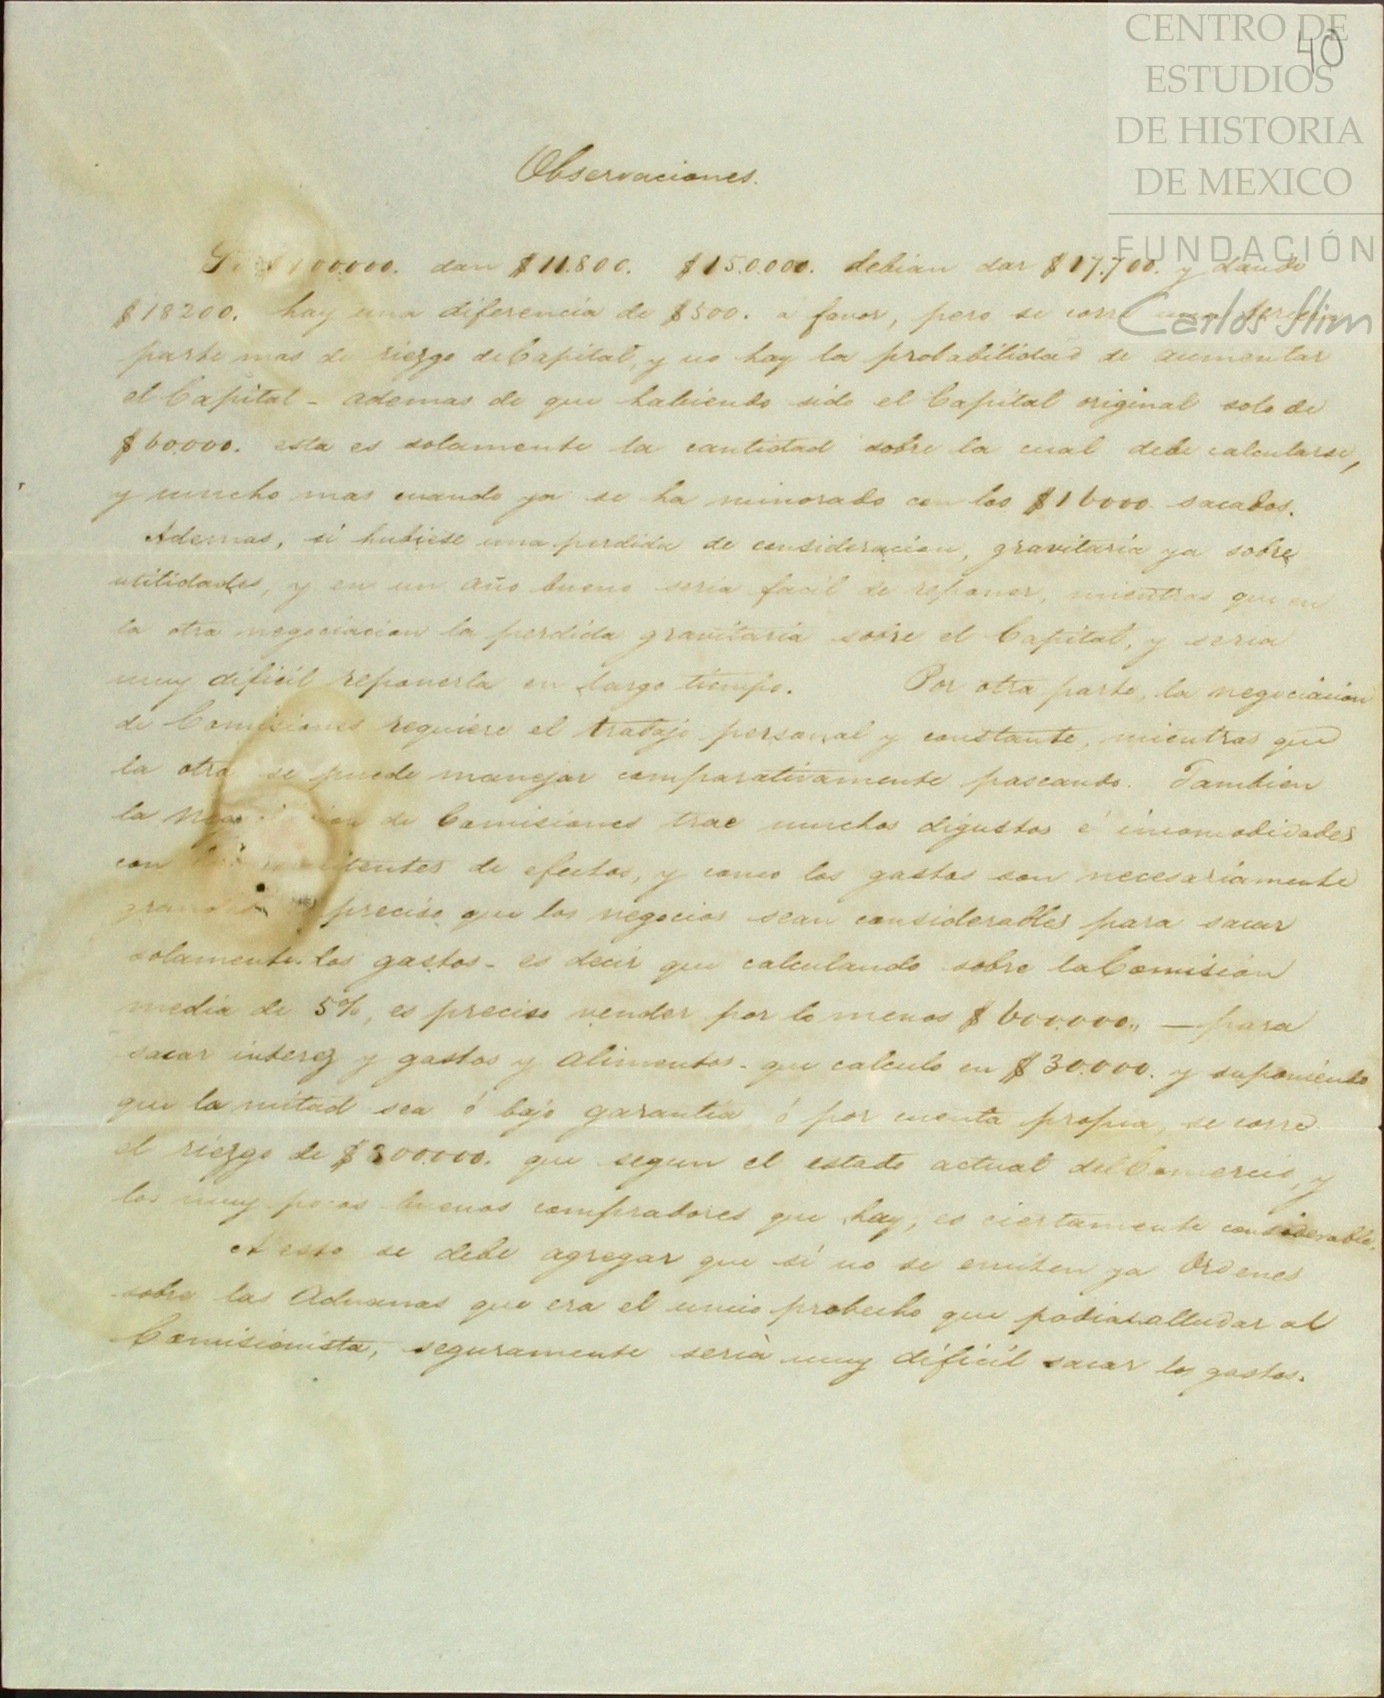 CENTRO DE
ESTUDIOS
DE HISTORIA
DE MEXICO
FUNDACIÓN
Carlos Slim
40
Observaciones.
Si $100.000. dan $11.800. $150.000. debian dar $17.700. y dando
$18200. hay una diferencia de $500. a favor, pero se corre una
parte mas de riezgo de Capital, y no hay la probabilidad de aumentar
el Capital - ademas de que habiendo sido el Capital original solo de
$60.000. esta es solamente la cantidad sobre la cual debe calcularse,
y mucho mas cuando ya se ha minorado con los $16000 sacados.
Ademas, si hubiese una perdida de consideracion, gravitaria ya sobre
utilidades, y en un año bueno seria facil de reponer, mientras que en
la otra negociacion la perdida gravitaria sobre el Capital, y seria
muy dificil reponerla en largo tiempo. Por otra parte, la negociacion
de Comisiones requiere el trabajo personal y constante, mientras que
la otra se puede manejar comparativamente paseando. Tambien
la de Comisiones trae muchos digustos é incomodidades
con de efectos, y como los gastos son necesariamente
preciso que los negocios sean considerables para sacar
solamente los gastos - es decir que calculando sobre la Comisión
media de 5%, es preciso vender por lo menos $600.000,, — para
sacar interez y gastos y alimentos - que calculo en $30.000. y suponiendo
que la mitad sea ó bajo garantia ó por cuenta propia, se corre
el riezgo de $300.000. que segun el estado actual del Comercio, y
los muy pocos buenos compradores que hay, es ciertamente considerable.
A esto se debe agregar que si no se emiten ya Ordenes
sobre las Aduanas que era el unico probecho que podia alludar al
Comisionista, seguramente seria muy dificil sacar los gastos.